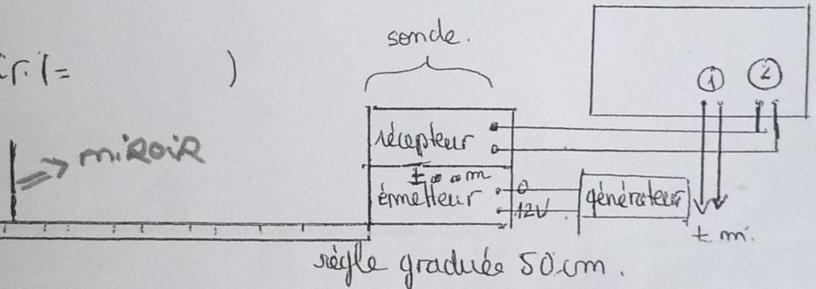 sonde.
=            )
① ②
miROiR
récepteur
t m
émetteur
0
12V
générateur
t m.
règle graduée 50 cm.